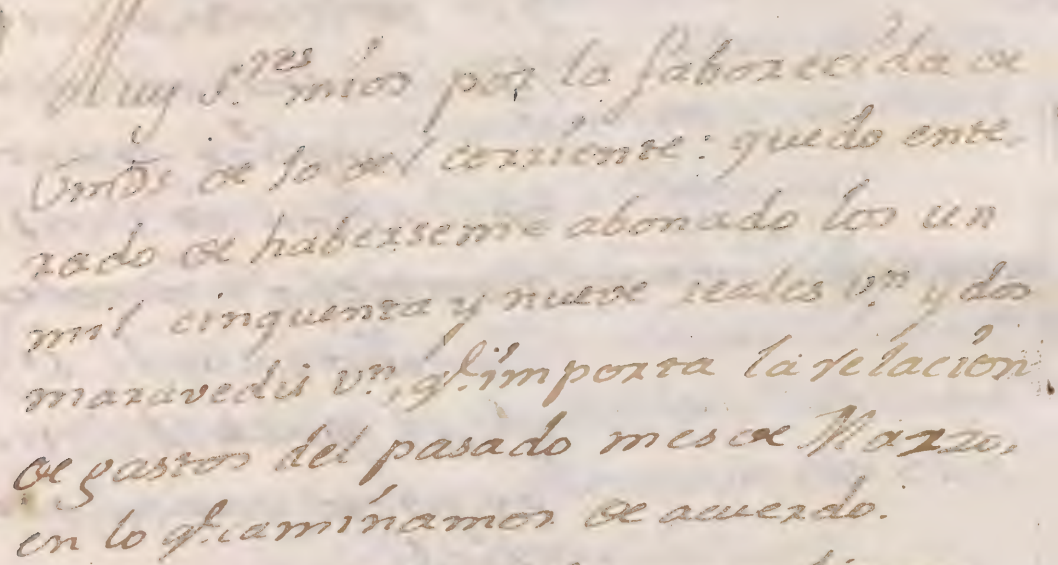 Muy S.res mios por la faborecida de
Vmds de 10 del corriente: quedo ente-
rado de haberseme abonado los un
mil cinquenta y nueve reales v.n y dos
maravedis v.n, q.e importa la relacion
de gastos del pasado mes de Marzo,
en lo q.e caminamos de acuerdo.